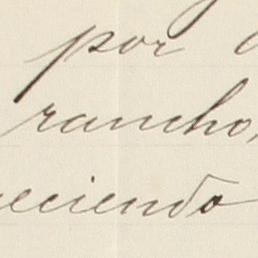 por
rancho,
eciendo